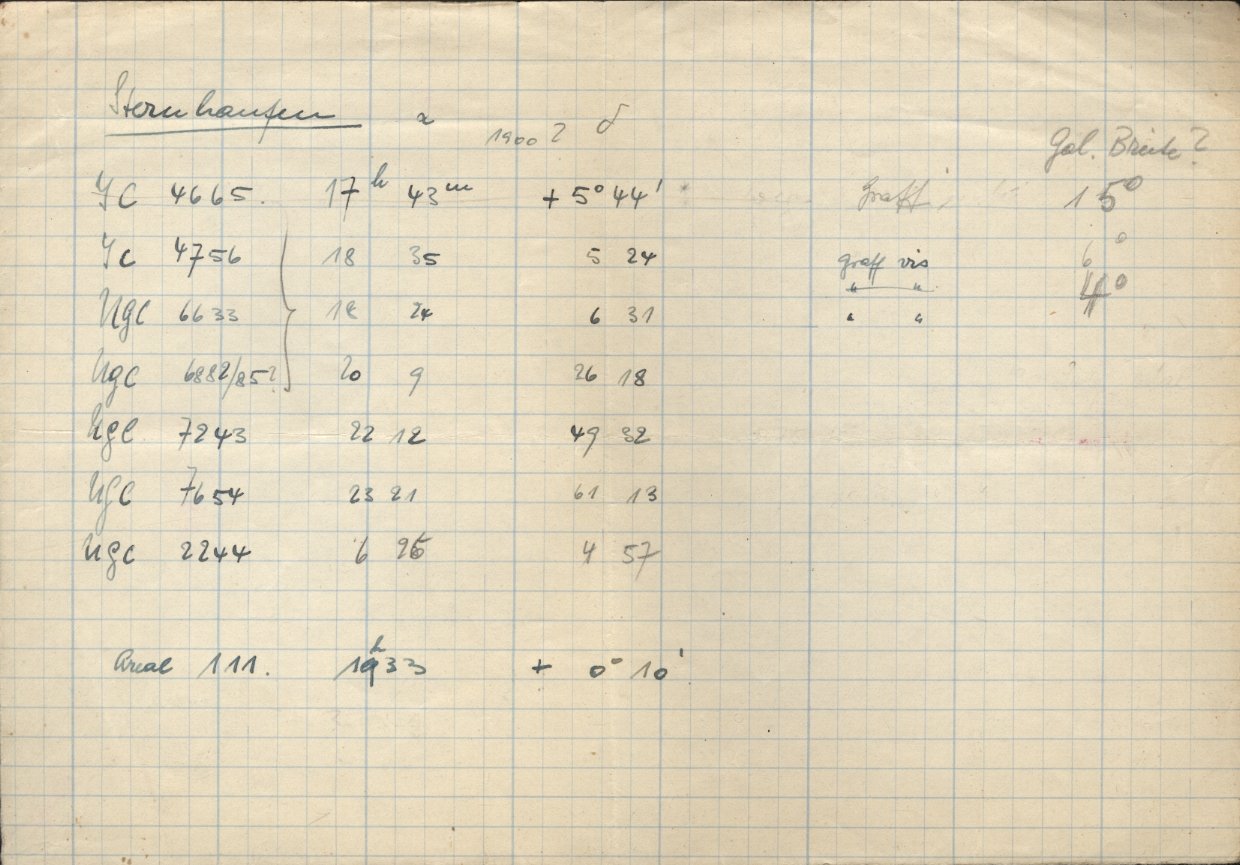 Sternhaufen α 1900? δ
Gal. Breite?
IC 4665. 17h 43m + 5° 44' * Graff 15°
Ic 4756 18 35 5 24 graff vis 6°
" " 4°
Ngc 6633 18 24 6 31 " "
Ngc 6882/85? 20 9 26 18
Ngc 7243 22 12 49 32
NGC 7654 23 21 61 13
Ngc 2244 6 26 4 57
Areal 111. 19h 33 + 0° 10'